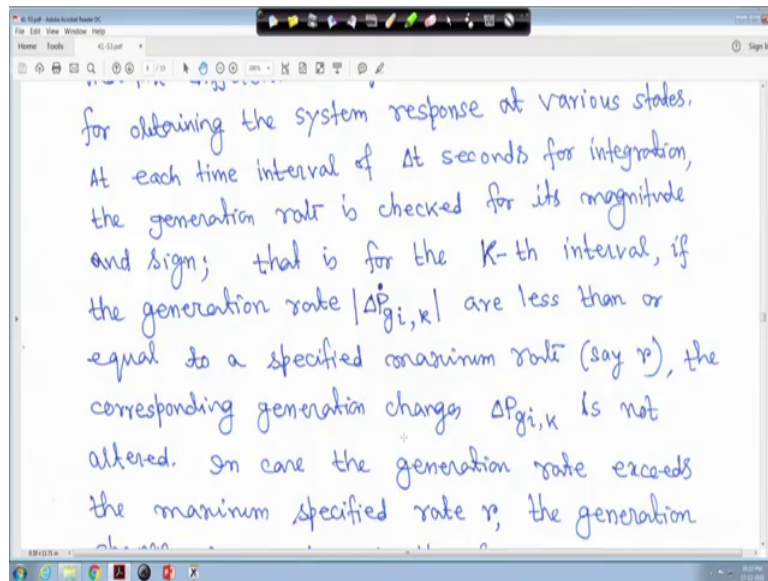 41-53.pdf - Adobe Acrobat Reader DC
File Edit View Window Help
Home Tools 41-53.pdf × Sign In
for obtaining the system response at various states.
At each time interval of Δt seconds for integration,
the generation rate is checked for its magnitude
and sign; that is for the K-th interval, if
the generation rate |ΔṖgi,k| are less than or
equal to a specified maximum rate (say r), the
corresponding generation changes ΔPgi,k is not
altered. In case the generation rate exceeds
the maximum specified rate r, the generation